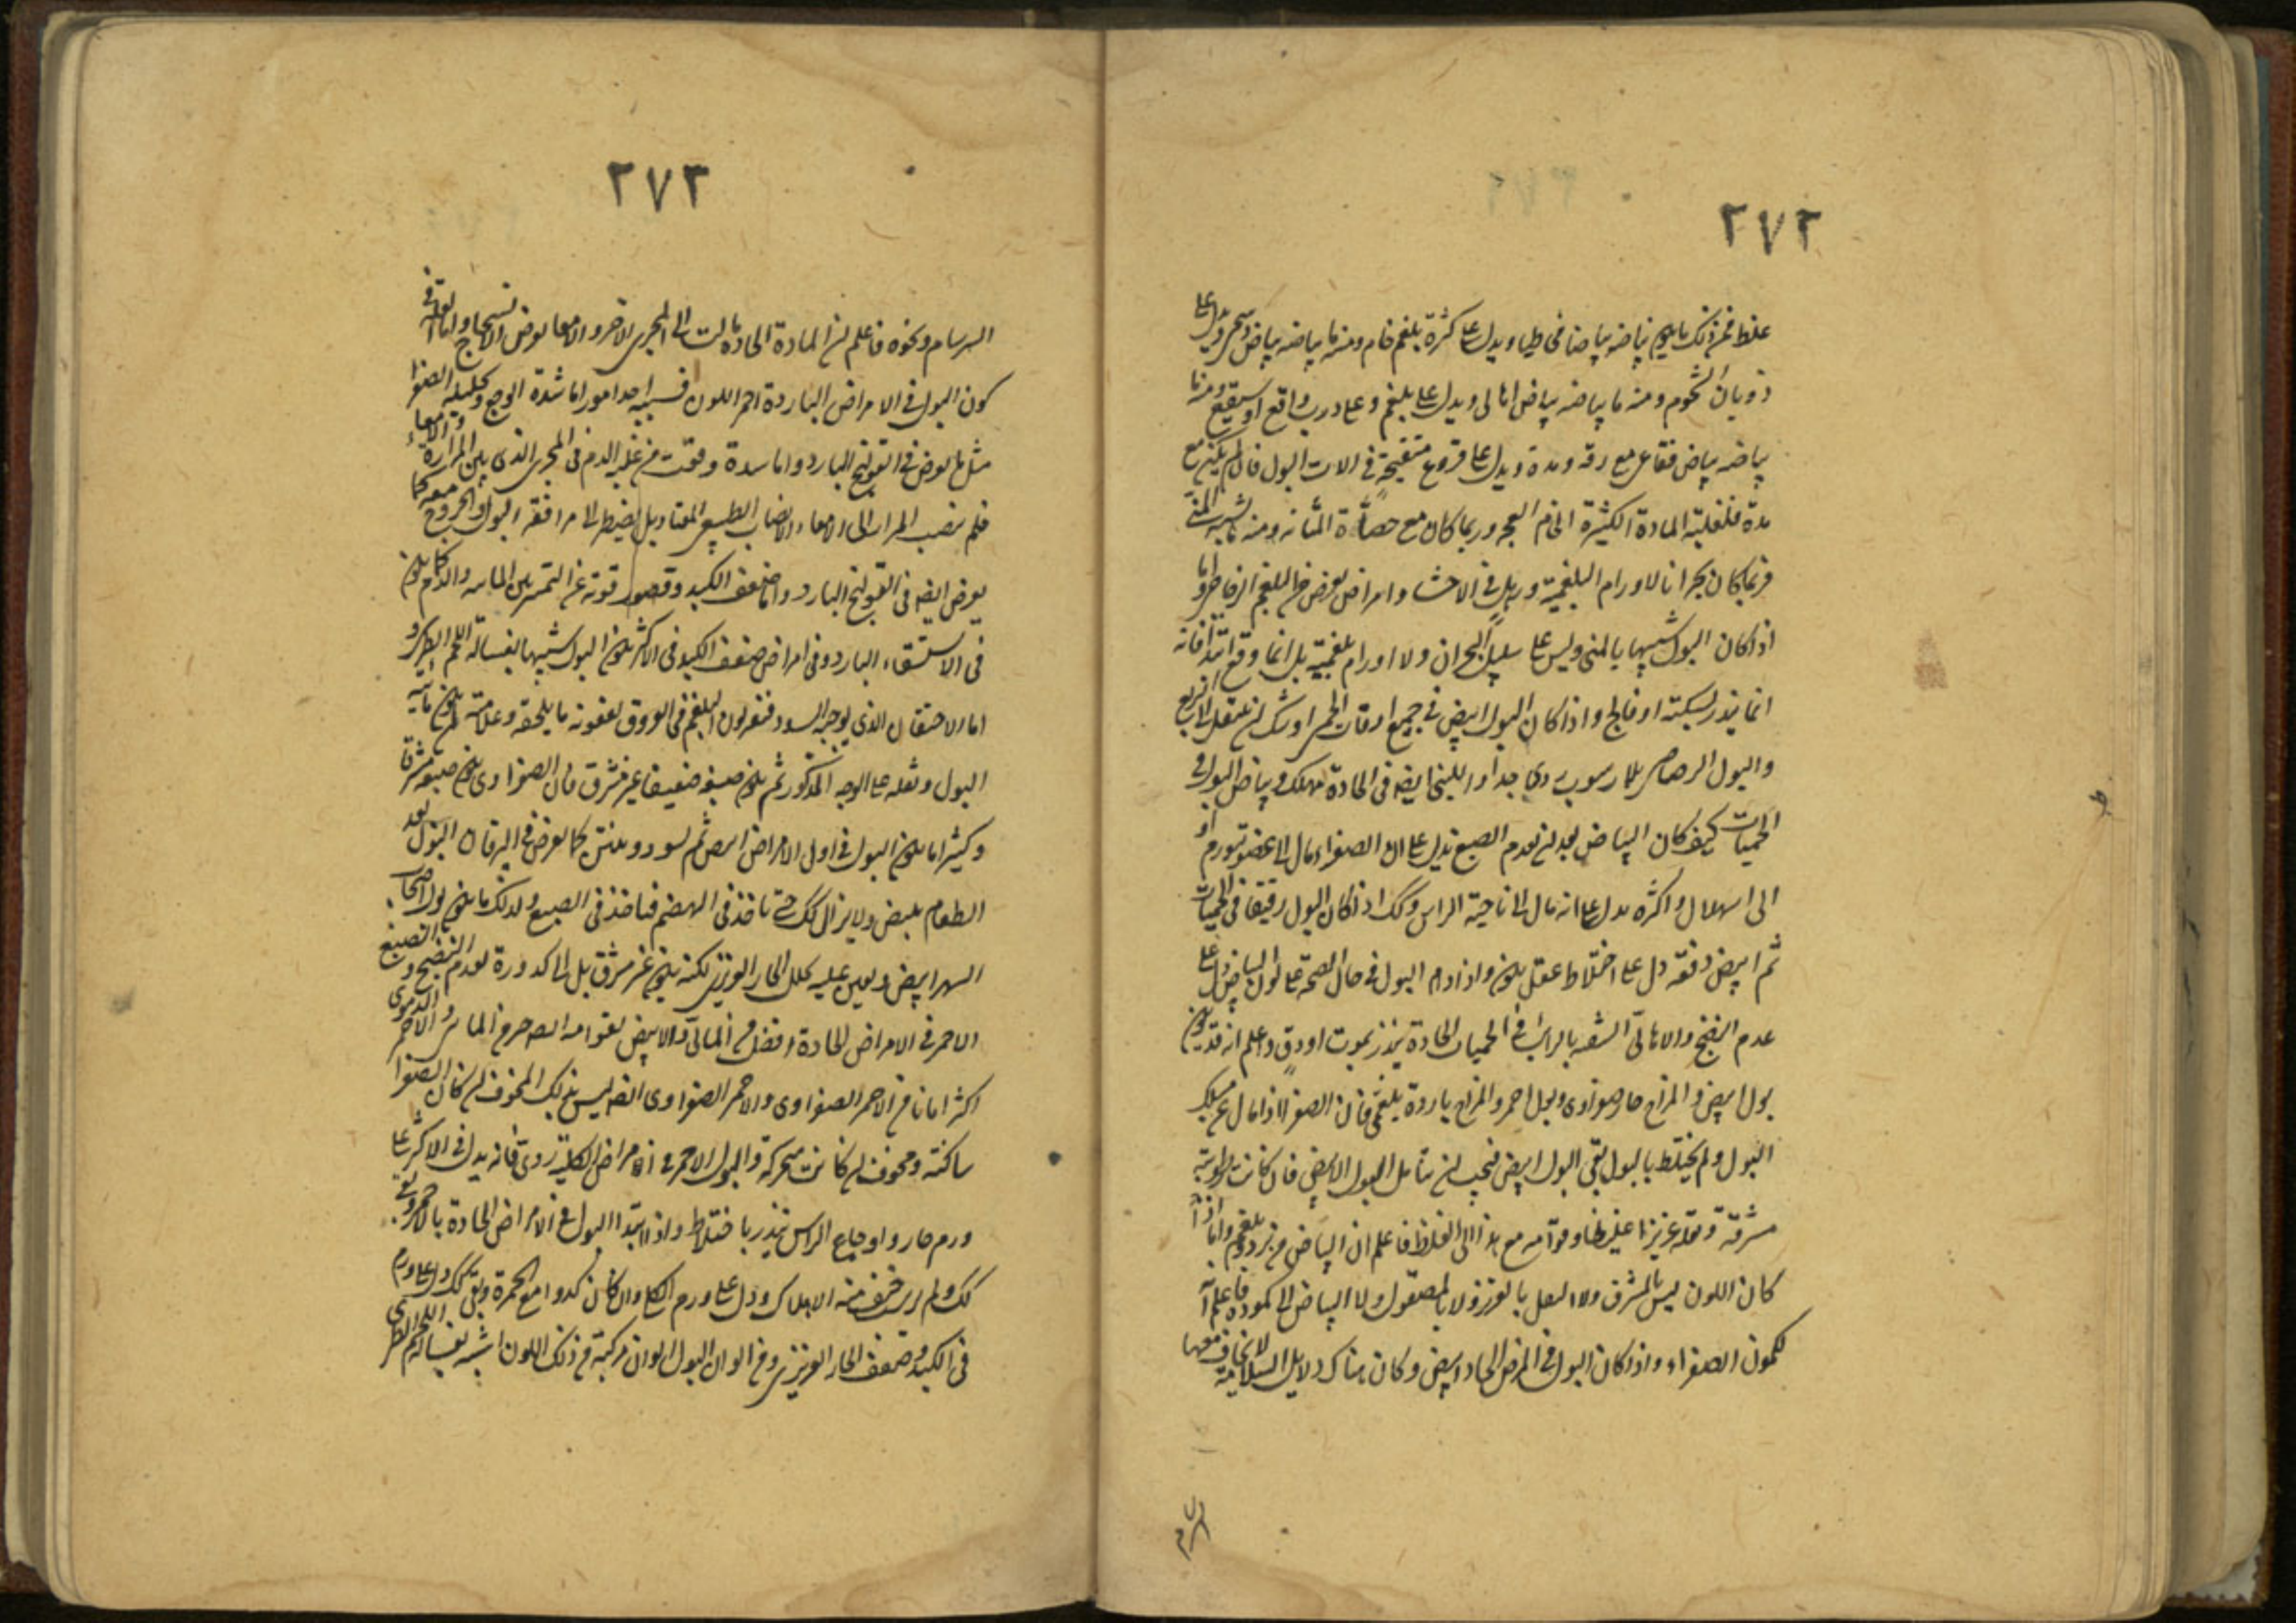 ٢٧٢
غلظ فمن ذلك ما يكون بياضه بياضا مخاطيا ويدل على كثرة بلغم خام ومنه ما بياضه بياض دسمي ويدل على
ذوبان الشحوم ومنه ما بياضه بياض اهالى ويدل على بلغم وعلى درب واقع او سيقع ومنه ما
بياضه بياض فقاعى مع رقة ومدة ويدل على قروح متقيحة فى الات البول فان لم يكن مع
مدة فلغلبة المادة الكثيرة الخام الفجه وربما كان مع حصاة المثانه ومنه ما يشبه المنى
فربما كان بحرانا لاورام البلغمية ورهل فى الاحشا وامراض تعرض من البلغم الزجاجى واما
اذا كان البول شبيها بالمنى وليس على سبيل البحران ولا اورام بلغمية بل انما وقع ابتدا فانه
انما ينذر بسكتة او فالج واذا كان البول ابيض فى جميع اوقات الحمى اوشك ان تنتقل الى الربع
والبول الرصاصى بلا رسوب ردى جدا واللبنى ايضه فى الحادة مهلك وبياض البول فى
الحميات كيف كان البياض بعد ان يعدم الصبغ يدل على ان الصفرا مال الى عضو يتورم او
الى اسهال واكثره يدل على انه مال الى ناحية الراس وكك اذا كان البول رقيقا فى الحميات
ثم ابيض دفعه دل على اختلاط عقل يكون واذا دام البول فى حال الصحة على لون البياض دل على
عدم النضج والاهالى الشبيه بالزيت فى الحميات الحادة ينذر بموت او دق واعلم انه قد يكون
بول ابيض والمزاج حار صفراوى وبول احمر والمزاج باردة بلغمى فان الصفرا اذا مال عن مسلك
البول ولم يختلط بالبول بقى البول ابيض فيجب ان يتامل البول الابيض فان كانت لونه
مشرقة وثفله غزيرا غليظا وقوامه مع هذا الى الغلظ فاعلم ان البياض من برد وبلغم واما اذا
كان اللون ليس بالمشرق ولا الثفل بالغزير ولا بالمصقول ولا البياض الى كمودة فاعلم انه
لكمون الصفراء واذا كان البول فى المرض الحاد ابيض وكان هناك دلايل السلامة لا يخاف معها
٢٧٣
السرسام ونحوه فاعلم ان المادة الحادة مالت الى المجرى الاخر والامعا تعرض الاسحاج واما العلة فى
كون البول فى الامراض الباردة احمر اللون فسببه احد امور اما شدة الوجع وتحليله الصفرا
مثل ما يعرض فى القولنج البارد واما سدة وقعت من غلبة الدم فى المجرى الذى بين المرارة والامعاء
فلم ينصب المرار الى الامعاء الانصباب الطبيعى المعتاد بل يضطر الى مرافقة البول والخروج معه كما
يعرض ايضه فى القولنج البارد واما ضعف الكبد وقصور قوته عن التميز بين المايه والدم كما يكون
فى الاستسقاء البارد وفى امراض ضعف الكبد فى الاكثر يكون البول شبيها بغسالة اللحم الطرى و
اما الاحتقان الذى يوجبه السدد فتغير لون البلغم فى العروق لعفونه ما يلحقه وعلامته ان يكون مايه
البول وثفله على الوجه المذكور ثم يكون صبغه ضعيفا غير مشرق فان الصفراوى يكون صبغه مشرقا
وكثيرا ما يكون البول فى اول الامراض ابيض ثم يسود وينتن كما يعرض فى اليرقان البول بعد
الطعام يبيض ولا يزال كك حتى تاخذ فى الهضم فياخذ فى الصبغ ولذلك ما يكون بول اصحاب
السهر ابيض ويعين عليه تحلل الحار الغريزى لكنه يكون غير مشرق بل الى كدورة لعدم النضج والصبغ
الاحمر فى الامراض الحادة افضل من المائى والابيض لقوامه اصلح من المائى والاحمر الدموى
اكثر امانا من الاحمر الصفراوى والاحمر الصفراوى ايضه ليس بذلك المخوف ان كان الصفرا
ساكنه ومخوف ان كانت متحركة والبول الاحمر فى امراض الكلية ردى فانه يدل فى الاكثر على
ورم حار واوجاع الراس ينذر باختلاط واذا ابتدا البول فى الامراض الحادة بالاحمر وبقى
كك ولم يرسب خيف منه الهلاك ودل على ورم الكلى وان كان كدرا مع الحمرة وبقى كك دل على ورم
فى الكبد وضعف الحار الغريزى ومن الوان البول الوان مركبة من ذلك اللون الشبيه بغسالة اللحم الطرى